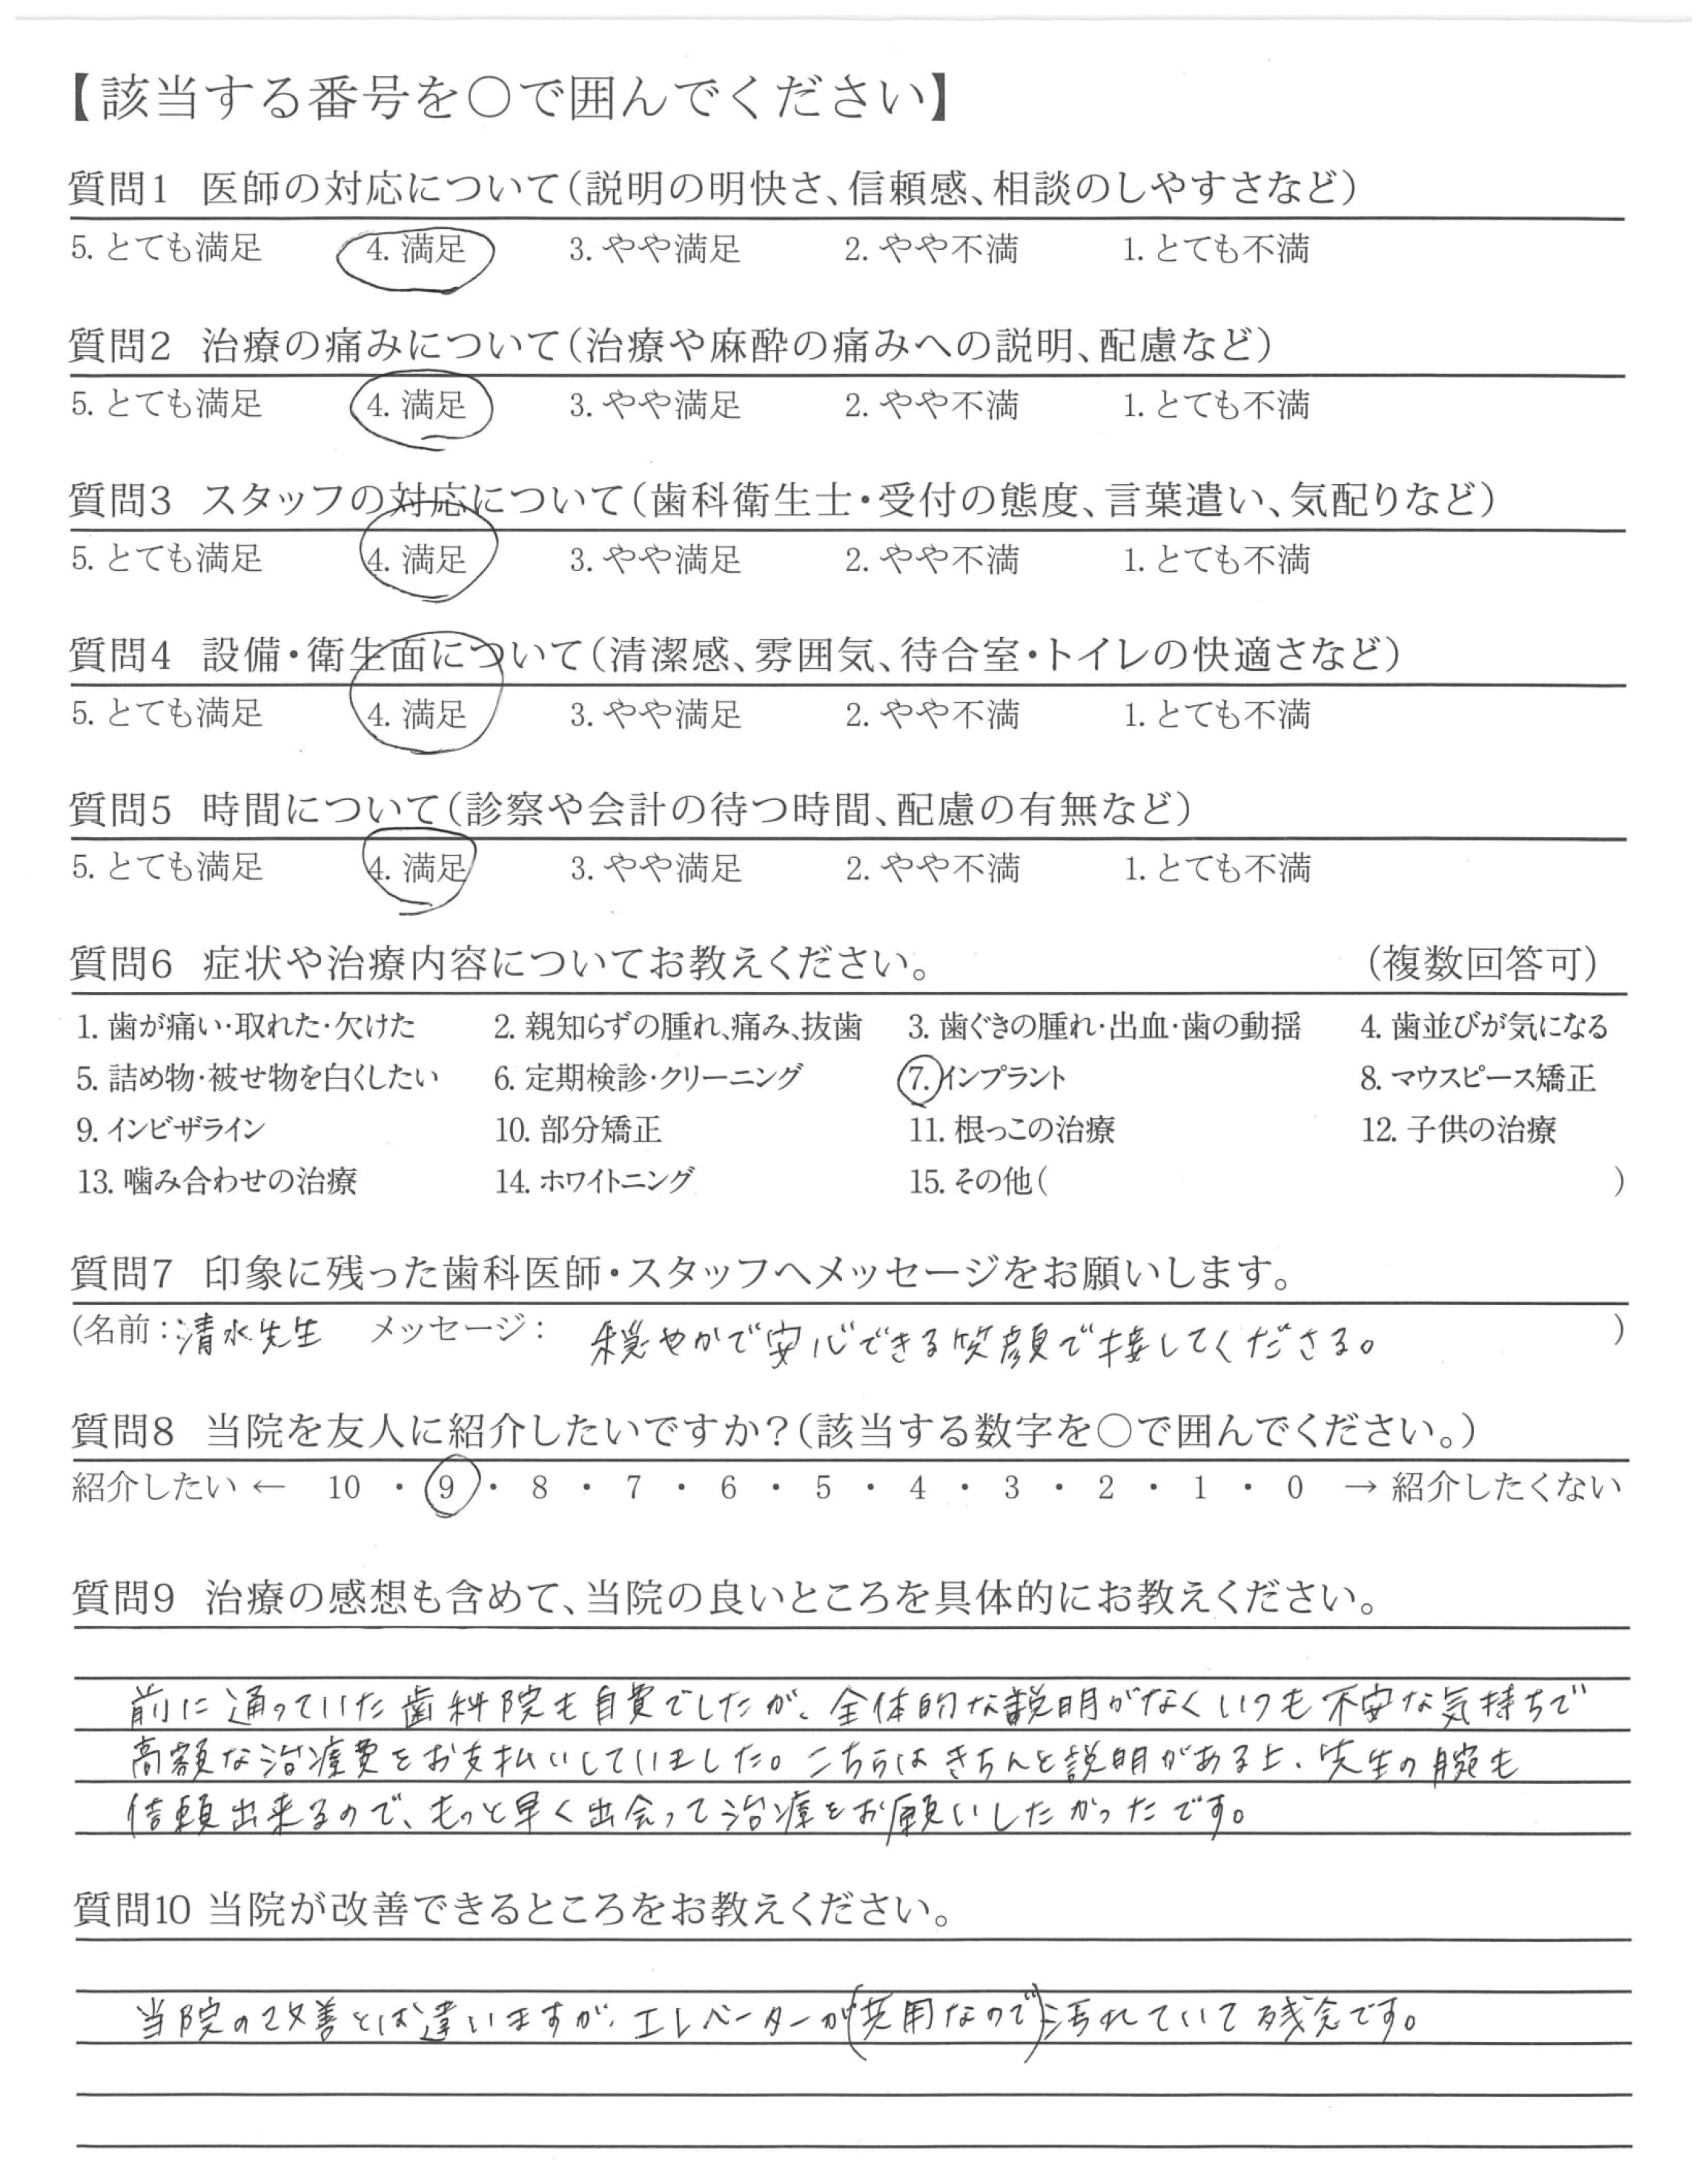 【該当する番号を○で囲んでください】
質問1 医師の対応について(説明の明快さ、信頼感、相談のしやすさなど)
5. とても満足 4. 満足 3. やや満足 2. やや不満 1. とても不満
質問2 治療の痛みについて(治療や麻酔の痛みへの説明、配慮など)
5. とても満足 4. 満足 3. やや満足 2. やや不満 1. とても不満
質問3 スタッフの対応について(歯科衛生士・受付の態度、言葉遣い、気配りなど)
5. とても満足 4. 満足 3. やや満足 2. やや不満 1. とても不満
質問4 設備・衛生面について(清潔感、雰囲気、待合室・トイレの快適さなど)
5. とても満足 4. 満足 3. やや満足 2. やや不満 1. とても不満
質問5 時間について(診察や会計の待つ時間、配慮の有無など)
5. とても満足 4. 満足 3. やや満足 2. やや不満 1. とても不満
質問6 症状や治療内容についてお教えください。 (複数回答可)
1. 歯が痛い・取れた・欠けた 2. 親知らずの腫れ、痛み、抜歯 3. 歯ぐきの腫れ・出血・歯の動揺 4. 歯並びが気になる
5. 詰め物・被せ物を白くしたい 6. 定期検診・クリーニング 7. インプラント 8. マウスピース矯正
9. インビザライン 10. 部分矯正 11. 根っこの治療 12. 子供の治療
13. 噛み合わせの治療 14. ホワイトニング 15. その他( )
質問7 印象に残った歯科医師・スタッフへメッセージをお願いします。
(名前:清水先生 メッセージ: 穏やかで安心できる笑顔で接してくださる。 )
質問8 当院を友人に紹介したいですか?(該当する数字を○で囲んでください。)
紹介したい ← 10 ・ 9 ・ 8 ・ 7 ・ 6 ・ 5 ・ 4 ・ 3 ・ 2 ・ 1 ・ 0 → 紹介したくない
質問9 治療の感想も含めて、当院の良いところを具体的にお教えください。
前に通っていた歯科院も自費でしたが、全体的な説明がなくいつも不安な気持ちで
高額な治療費をお支払いしていました。こちらはきちんと説明がある上、先生の腕も
信頼出来るので、もっと早く出会って治療をお願いしたかったです。
質問10 当院が改善できるところをお教えください。
当院の改善とは違いますが、エレベーターが(共用なので)汚れていて残念です。